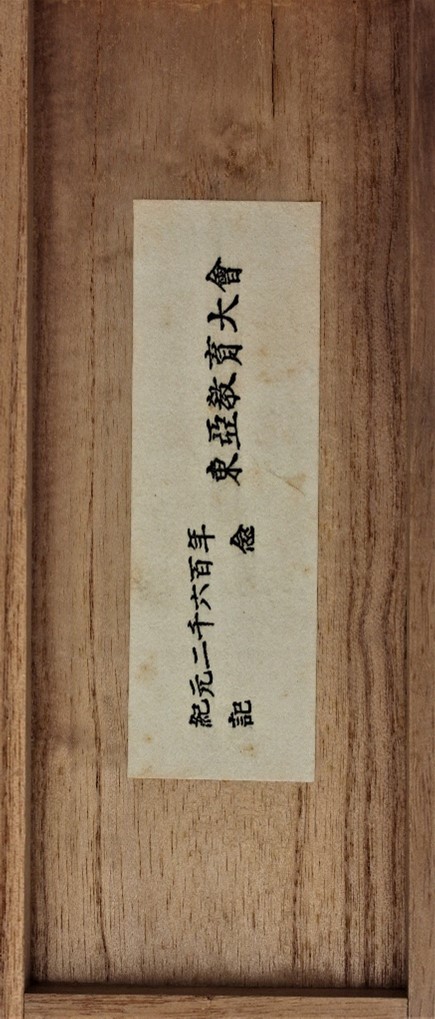 紀元二千六百年
記念
東亞教育大會